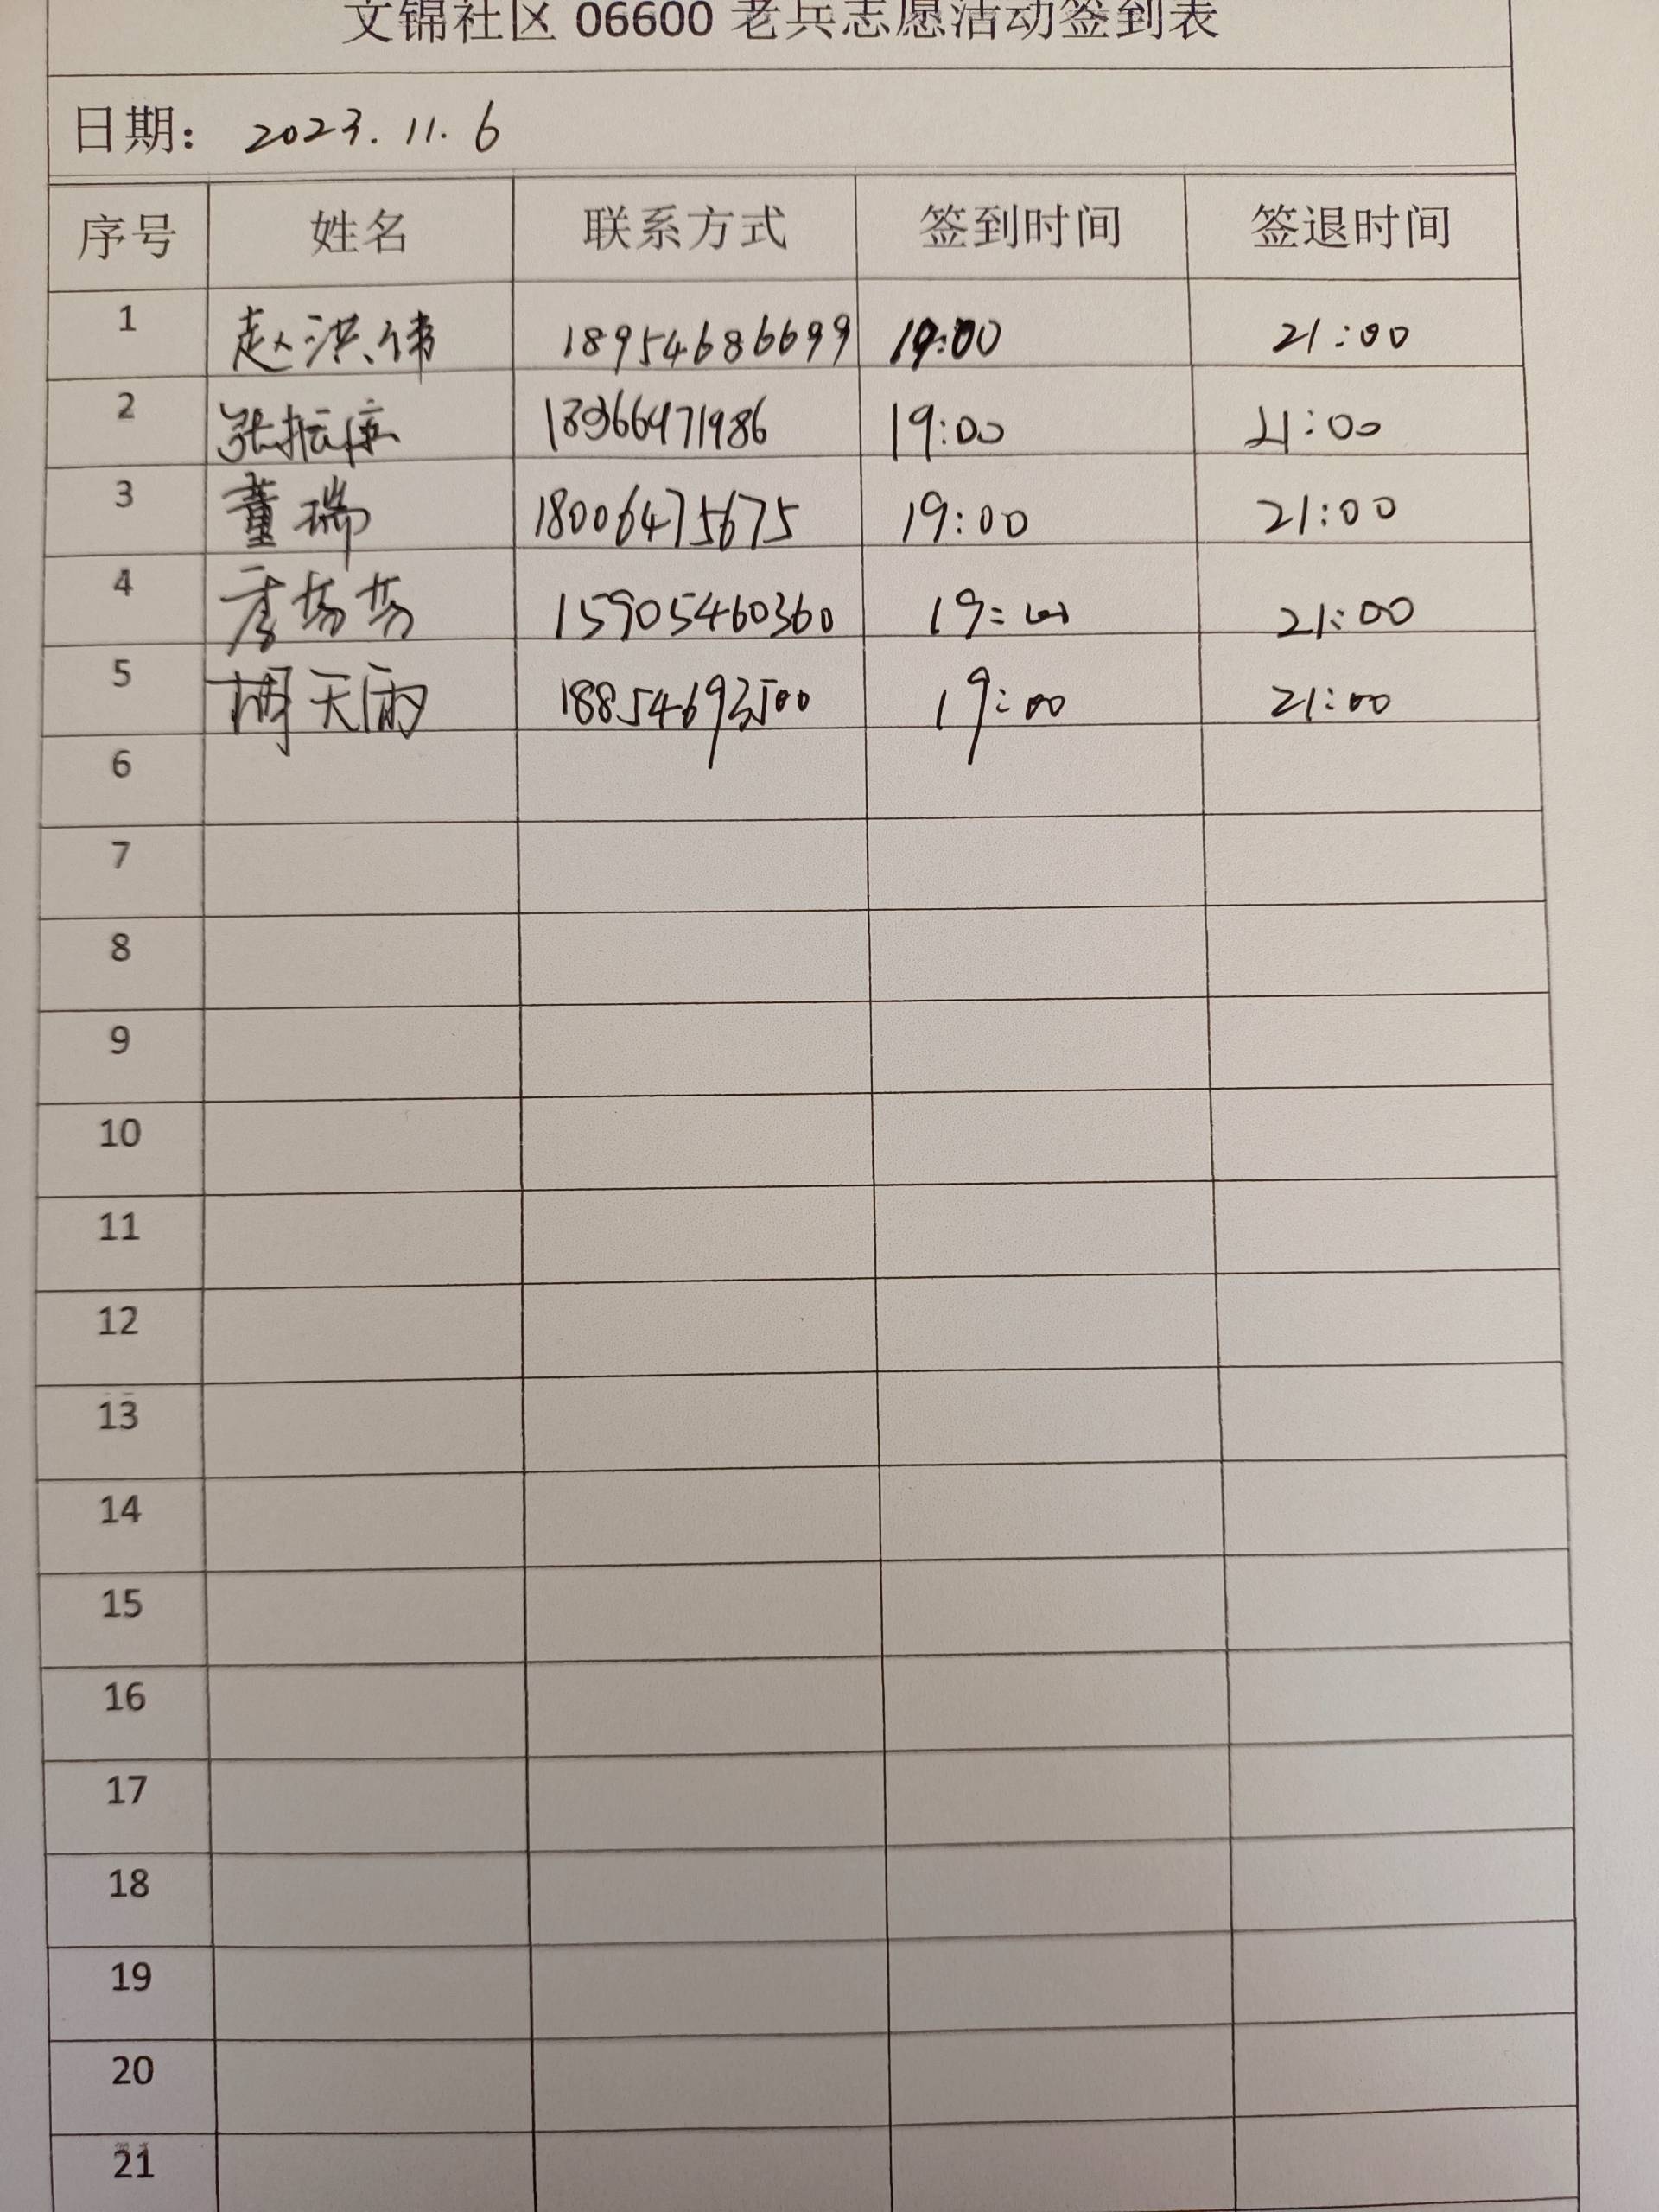 文锦社区 06600 老兵志愿活动签到表
日期： 2023.11.6
序号 姓名 联系方式 签到时间 签退时间
1 赵洪伟 18954686699 19:00 21:00
2 张振 19:00 21:00
3 董瑞 18006475675 19:00 21:00
4 15905460360 19:00 21:00
5 天雨 18854693500 19:00 21:00
6
7
8
9
10
11
12
13
14
15
16
17
18
19
20
21